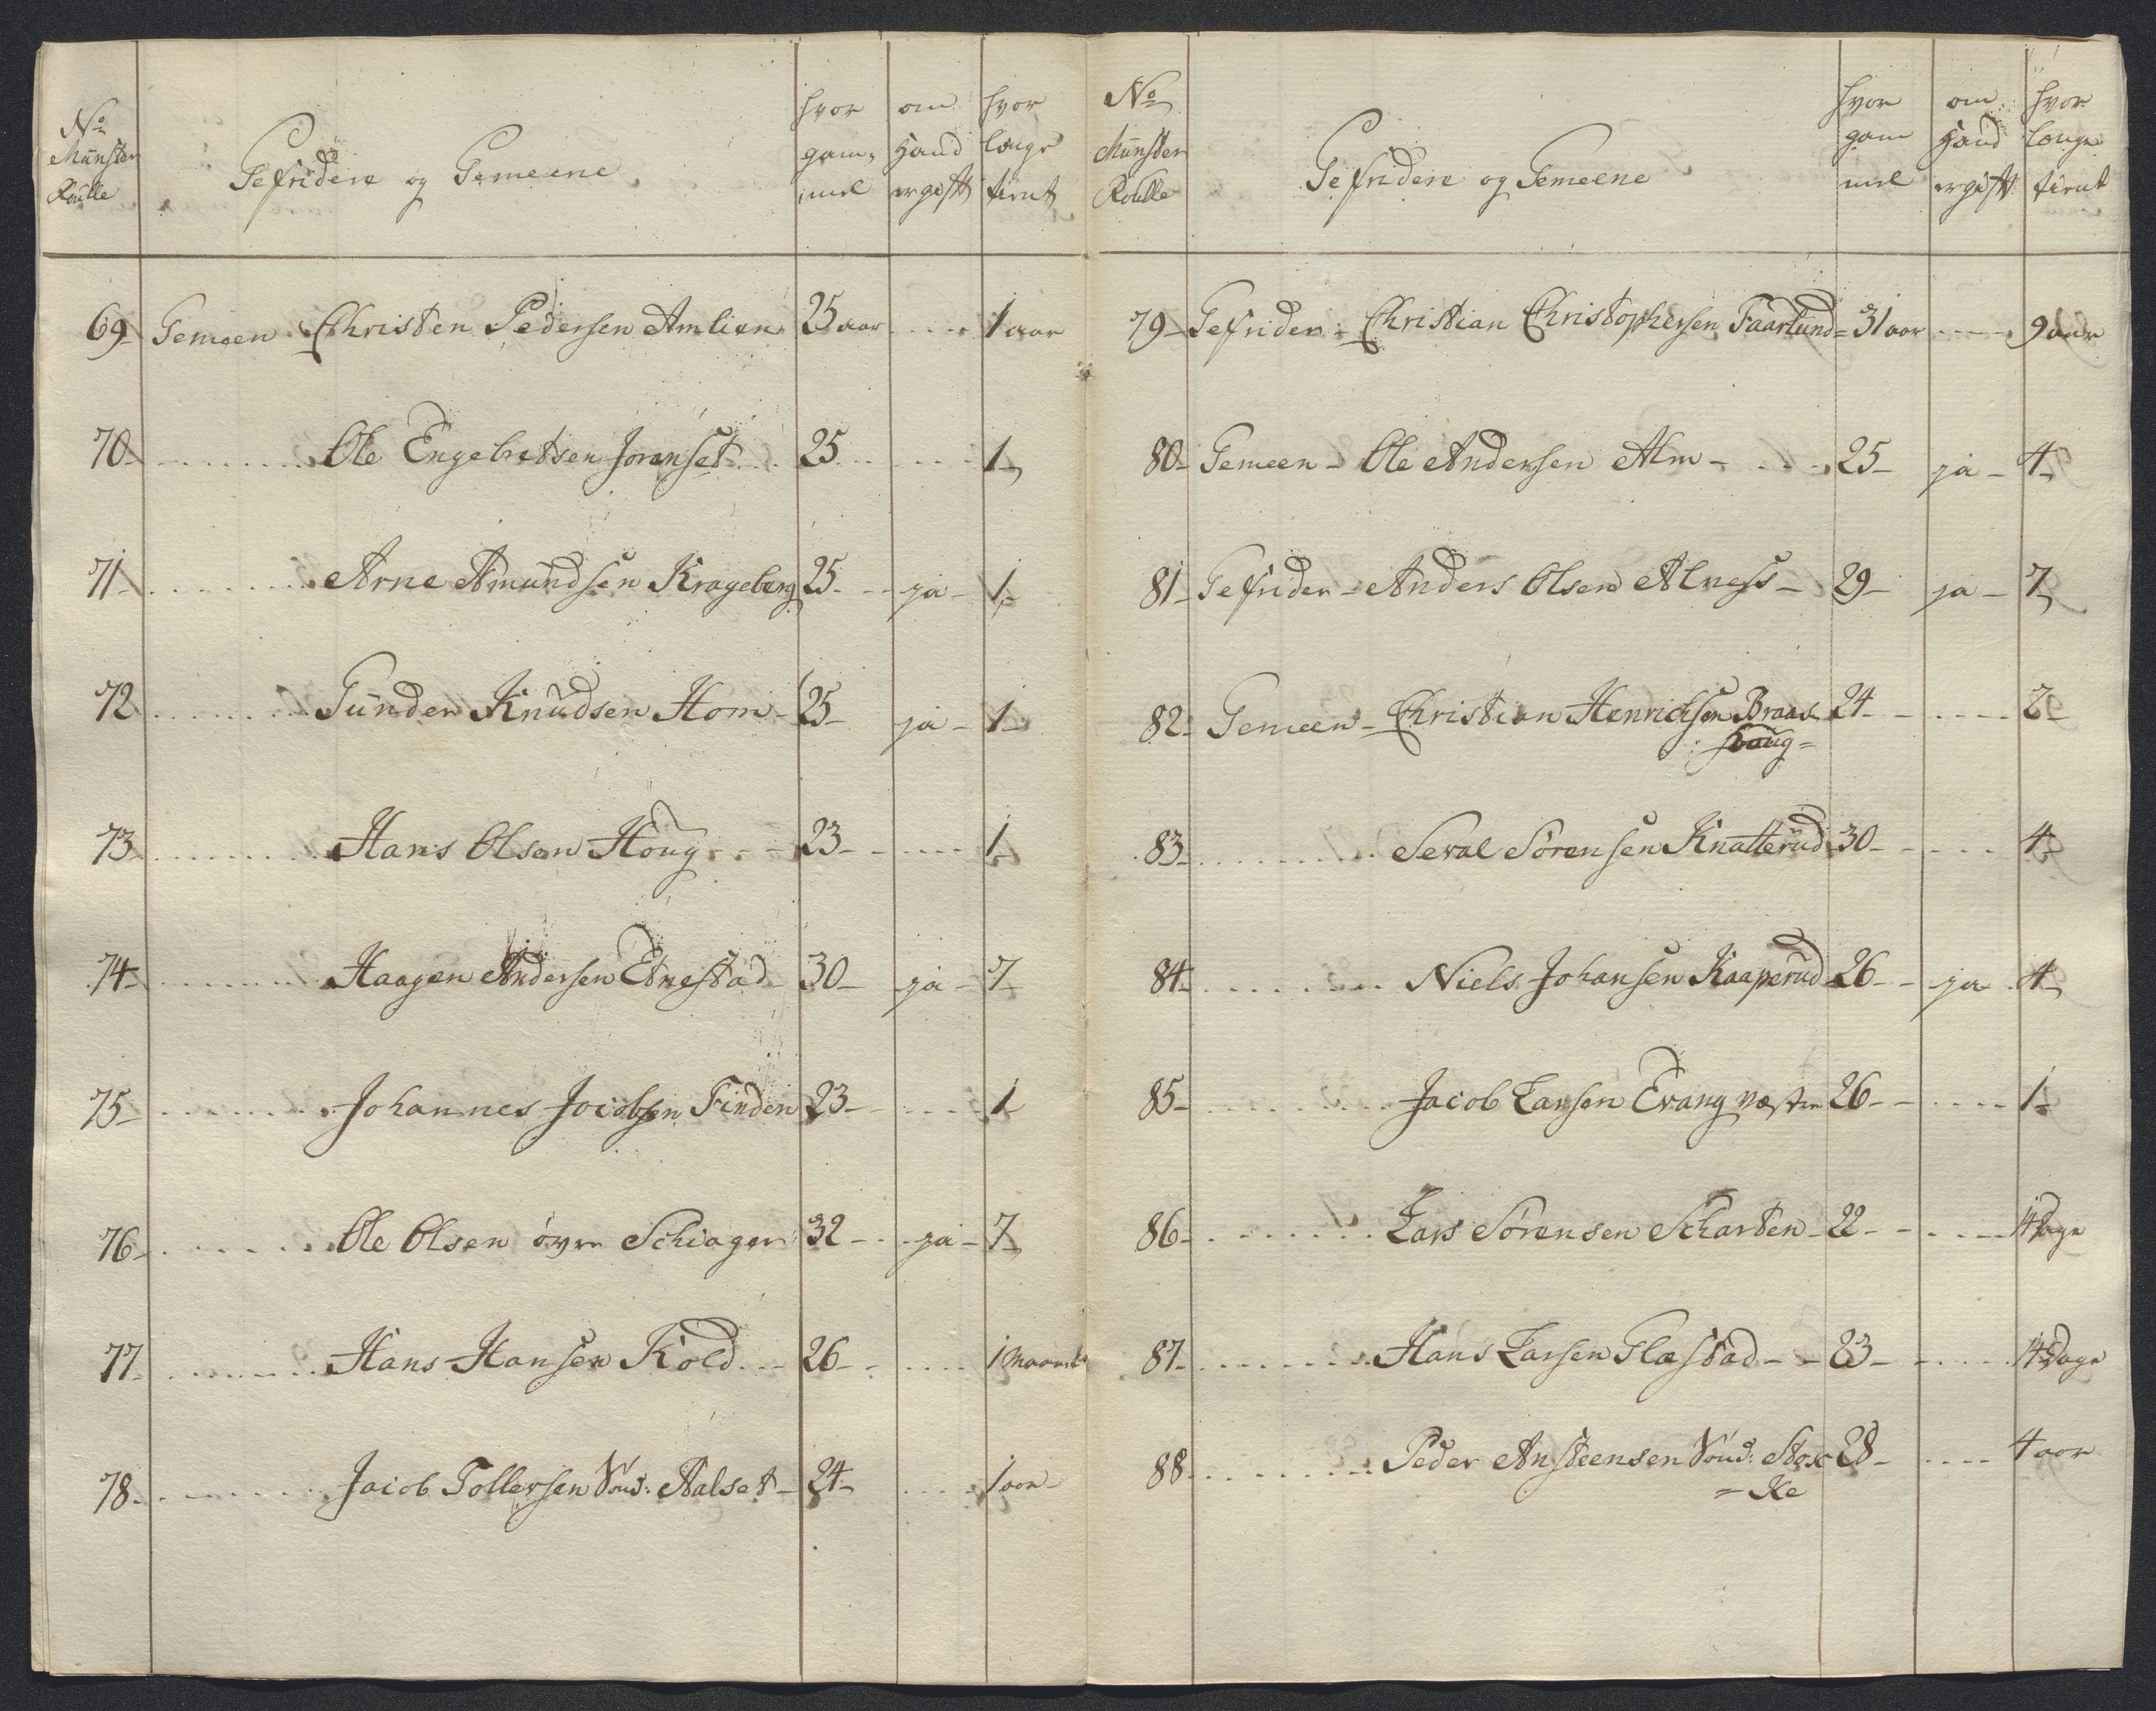 No Munster Roulle | Gefridere og Gemeene | hvor gam- mel | om Hand er gift | hvor længe tient
69 Gemeen Christen Pedersen Amlien 25 aar - 1 aar
70 - Ole Engebretsen Joranset 25 - 1
71 - Arne Amundsen Krageberg 25 - ja - 1
72 - Gunder Knudsen Hom - 25 - ja - 1
73 - Hans Olsen Houg - 23 - 1
74 - Haagen Andersen Etnestad 30 - ja - 7
75 - Johannes Jocobsen Finden 23 - 1
76 - Ole Olsen øvre Schiager 32 - ja - 7
77 - Hans Hansen Kold 26 - 1 Maanet
78 - Jacob Tollersen Sønd: Aalset - 24 - 1 aar
No Munster Roulle | Gefridere og Gemeene | hvor gam mel | om Hand er gift | hvor længe tient
79 - Gefrider - Christian Christophersen Faarlund = 31 aar - 9 aar
80 - Gemeen - Ole Andersen Alm - 25 - ja - 4
81 - Gefrider - Anders Olsen Alness - 29 - ja - 7
82 - Gemeen - Christian Henrichsen Braas- 24 - 2
houg =
83 - Seval Sörensen Knatterud 30 - 4
84 - Niels Johansen Kaaperud 26 - ja - 4
85 - Jacob Larsen Evang væstre 26 - 1
86 - Lars Sörensen Scharten - 22 - 14 Dage
87 - Hans Larsen Glæstad - 23 - 14 Dage
88 - Peder Ansteensen Sønd: Stox 28 - 4 aar
= Ke